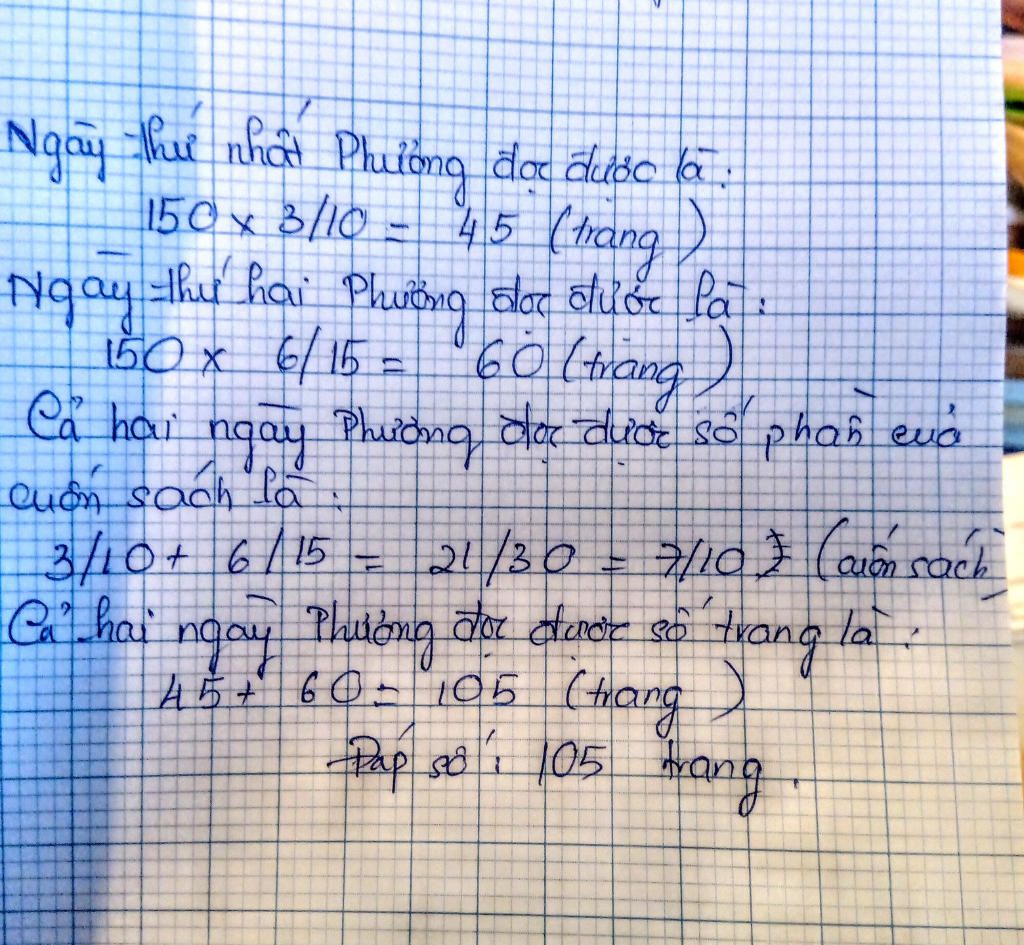 Ngày thứ nhất Phương đọc được là:
150 x 3/10 = 45 (trang)
Ngày thứ hai Phương đọc được là:
150 x 6/15 = 60 (trang)
Cả hai ngày Phương đọc được số phần của
cuốn sách là:
3/10 + 6/15 = 21/30 = 7/10 (cuốn sách)
Cả hai ngày Phương đọc được số trang là:
45 + 60 = 105 (trang)
Đáp số: 105 trang.